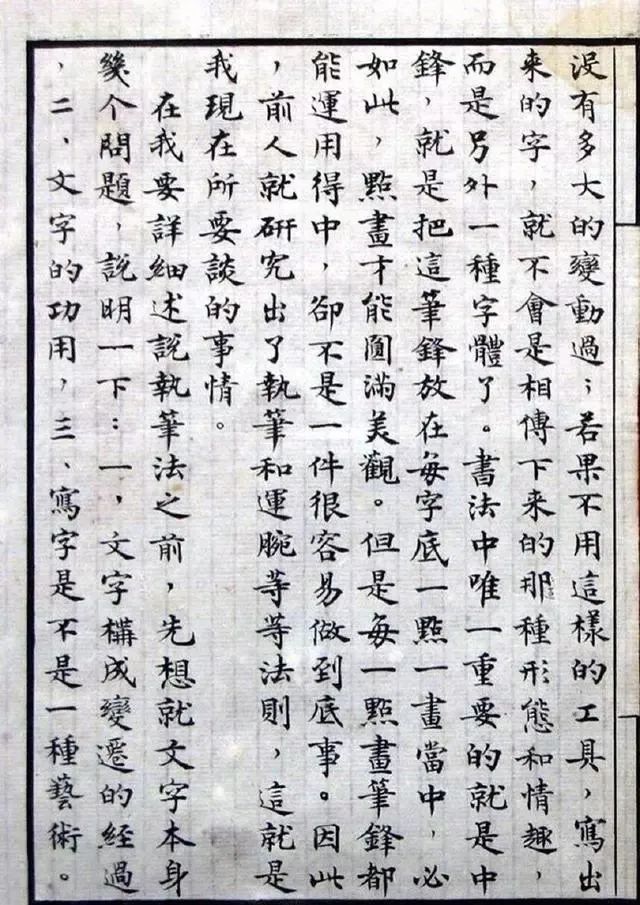 没有多大的變動過；若果不用這樣的工具，寫出
来的字，就不會是相傳下来的那種形態和情趣，
而是另外一種字體了。書法中唯一重要的就是中
鋒，就是把這筆鋒放在每字底一點一畫當中，必
如此，點畫才能圓滿美觀。但是每一點畫筆鋒都
能運用得中，卻不是一件很容易做到底事。因此
，前人就研究出了執筆和運腕等等法則，這就是
我現在所要談的事情。
在我要詳細述說執筆法之前，先想就文字本身
幾个問題，說明一下：一，文字構成變遷的經過
，二、文字的功用，三、寫字是不是一種藝術。